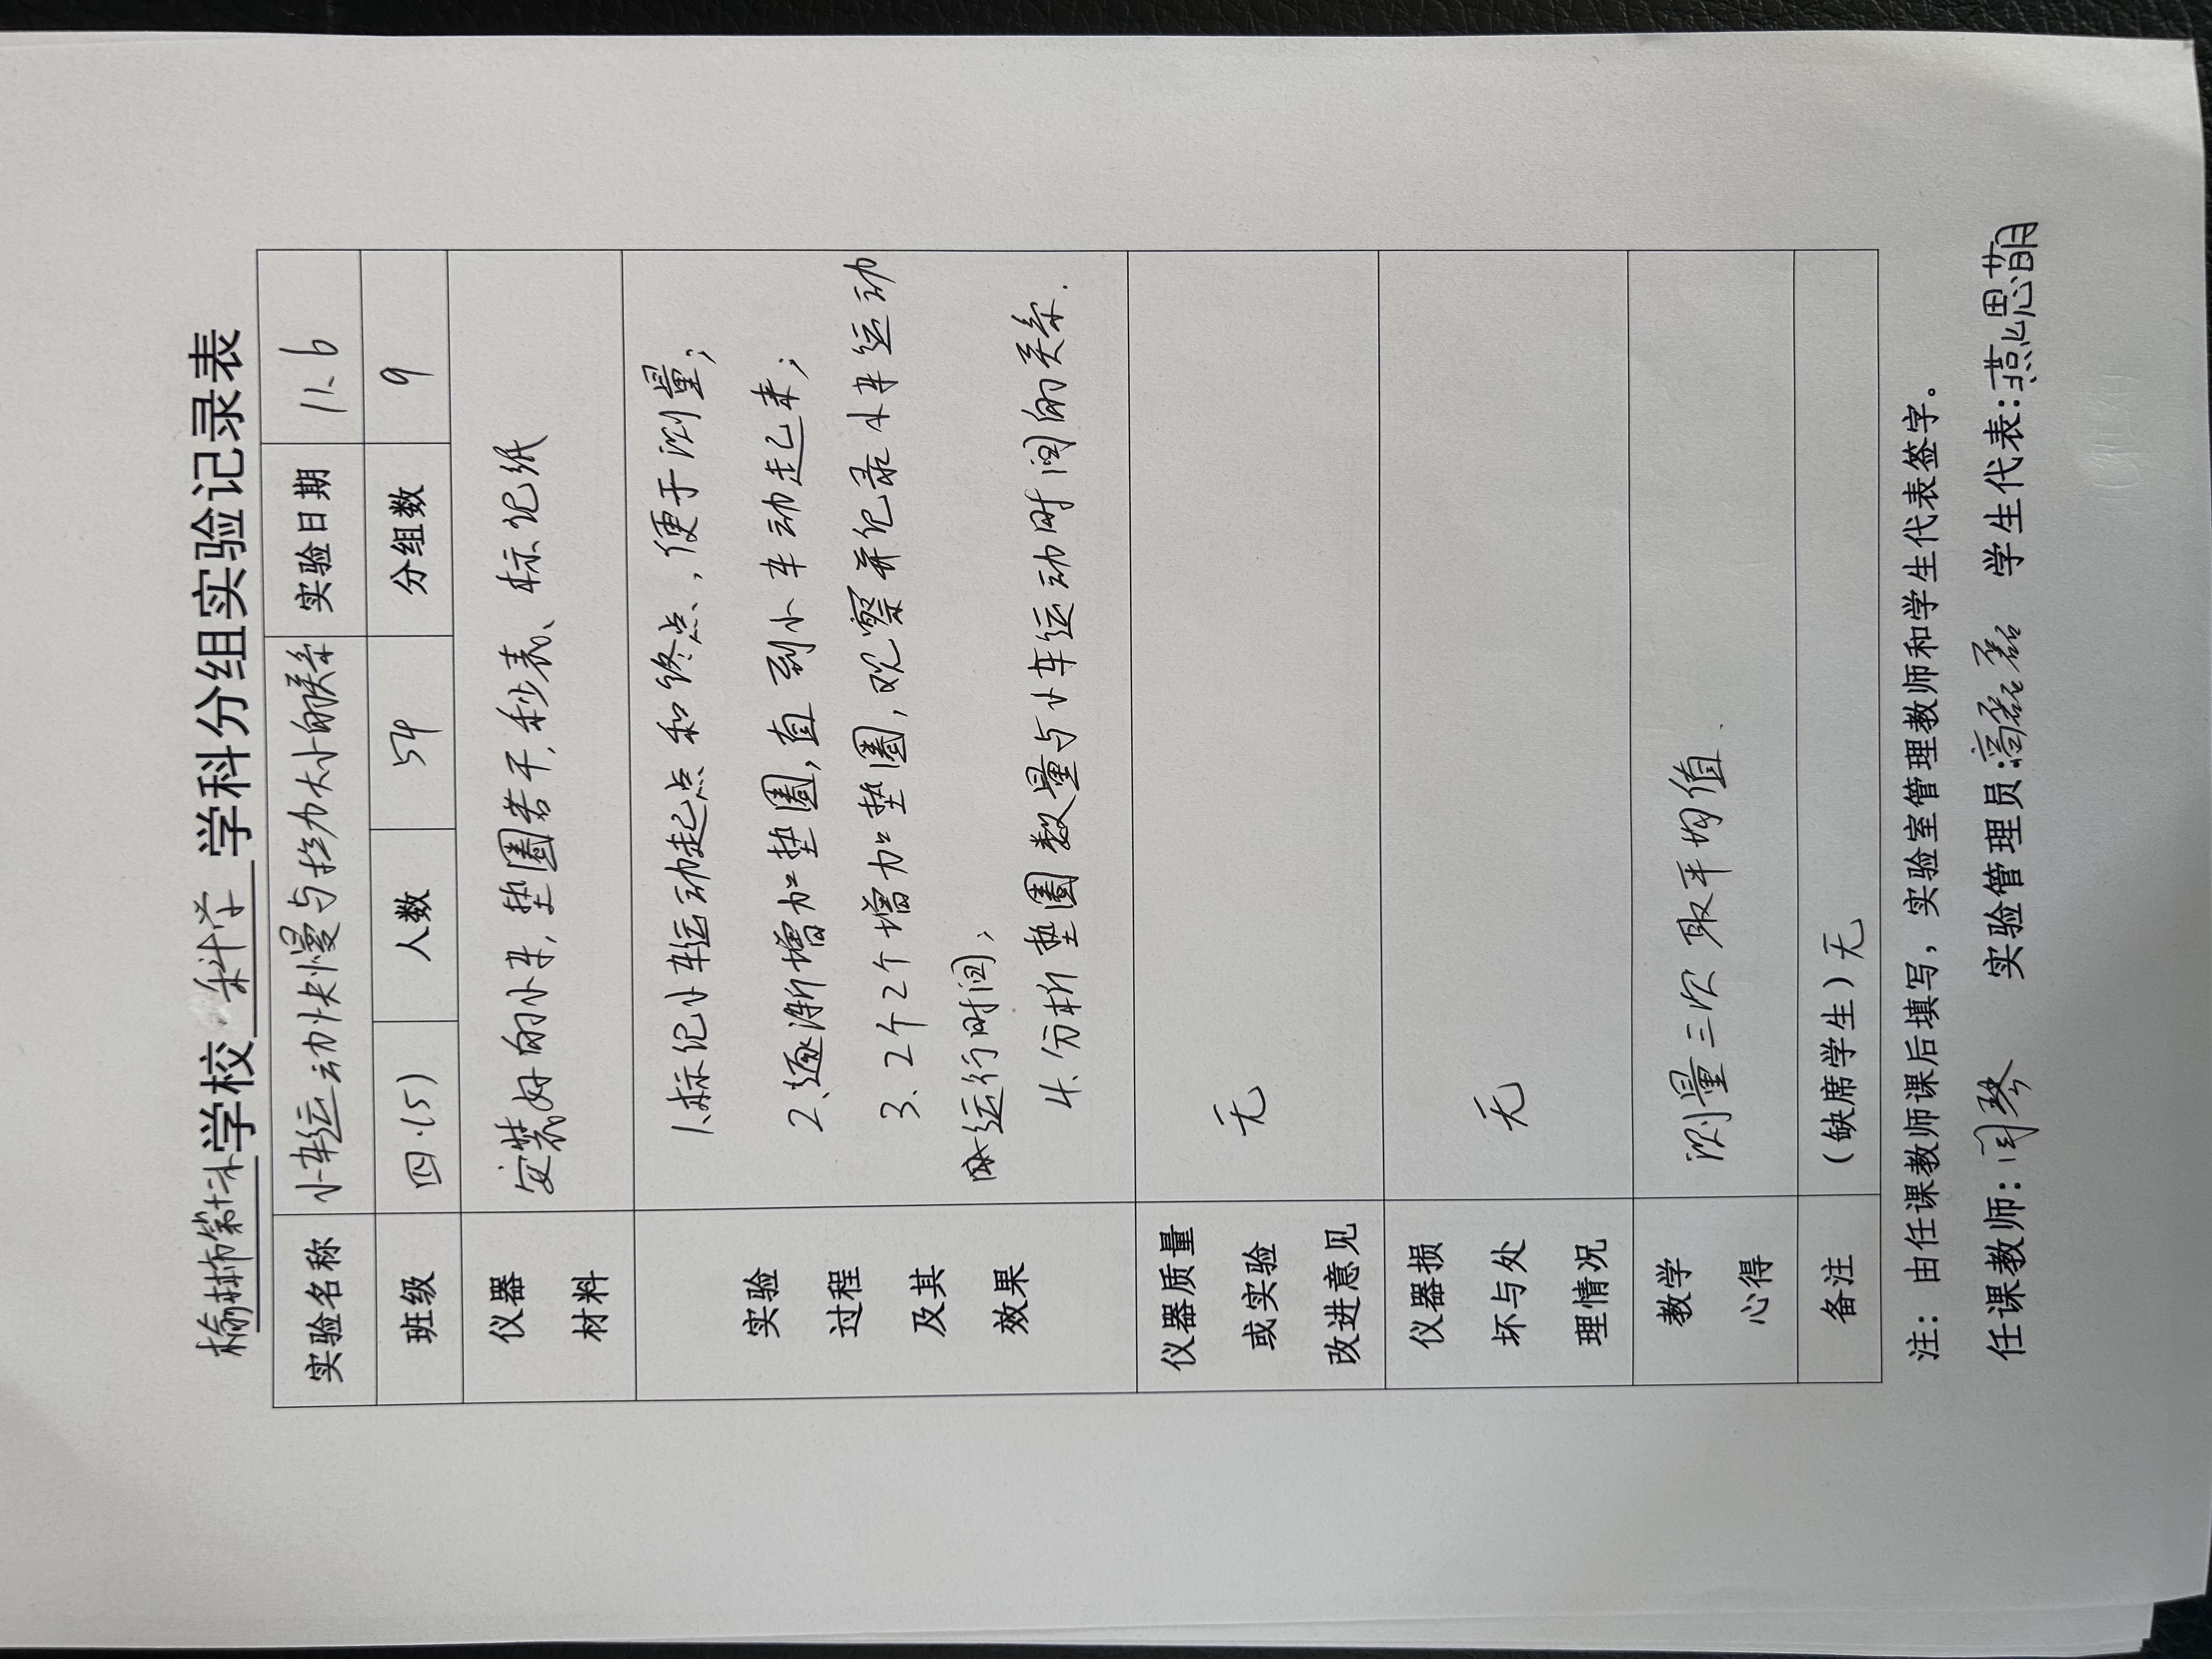 榆林市第十六学校 科学 学科分组实验记录表
实验名称 小车运动快慢与拉力大小的关系 实验日期 11.6
班级 四.(5) 人数 54 分组数 9
仪器材料 安装好的小车,垫圈若干,秒表、标记纸
实验过程及其效果
1.标记小车运动起点和终点,便于测量;
2.逐渐增加垫圈,直到小车动起来;
3.2个2个增加垫圈,观察并记录小车运动
运行时间;
4.分析垫圈数量与小车运动时间的关系.
仪器质量或实验改进意见 无
仪器损坏与处理情况 无
教学心得 测量三次取平均值.
备注 (缺席学生)无
注:由任课教师课后填写,实验室管理教师和学生代表签字。
任课教师:闫琴 实验管理员:高磊磊 学生代表:燕思萌